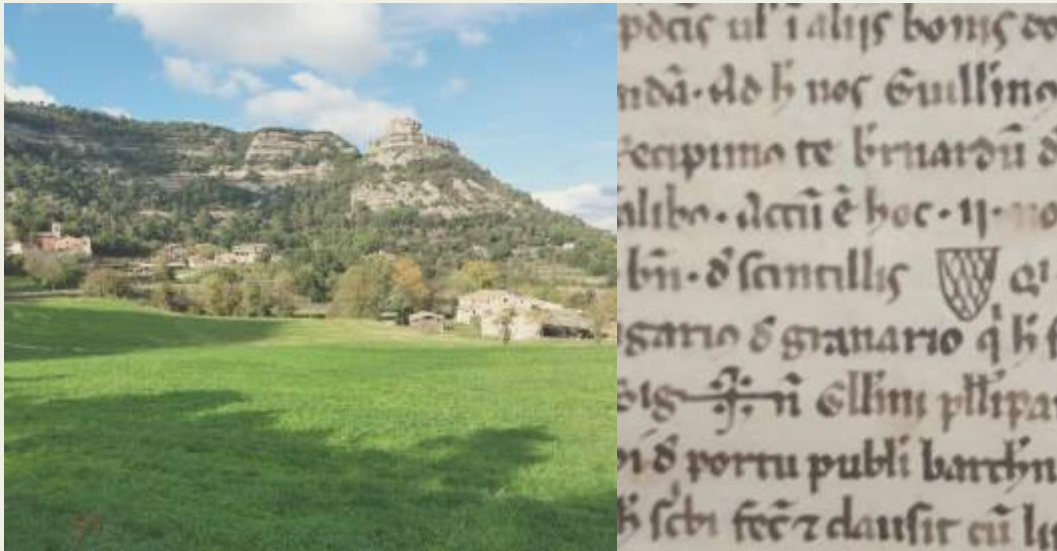 p̄dc̄is ul' ī alijs bonis
ndā · Ad h̄ nos Guillm̄
recipimꝰ te b̄rnardū d
alibꝰ · Actū ē hoc · ij · no
bn̄ · d̄ scintillis
gario d̄ granario q̄ h̄
sig n̄ Gllm̄i
d̄ portu publi barch̄n
h̄ sc̄bi fec̄ ⁊ clausit cū